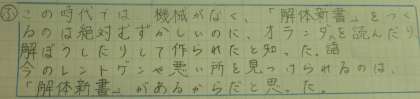 ⑤この時代では、機械がなく、「解体新書」をつく
るのは絶対むずかしいのに、オランダ語を読んだり、
解ぼうしたりして作られたと知った。
今のレントゲンや悪い所を見つけられるのは、
「解体新書」があるからだと思った。